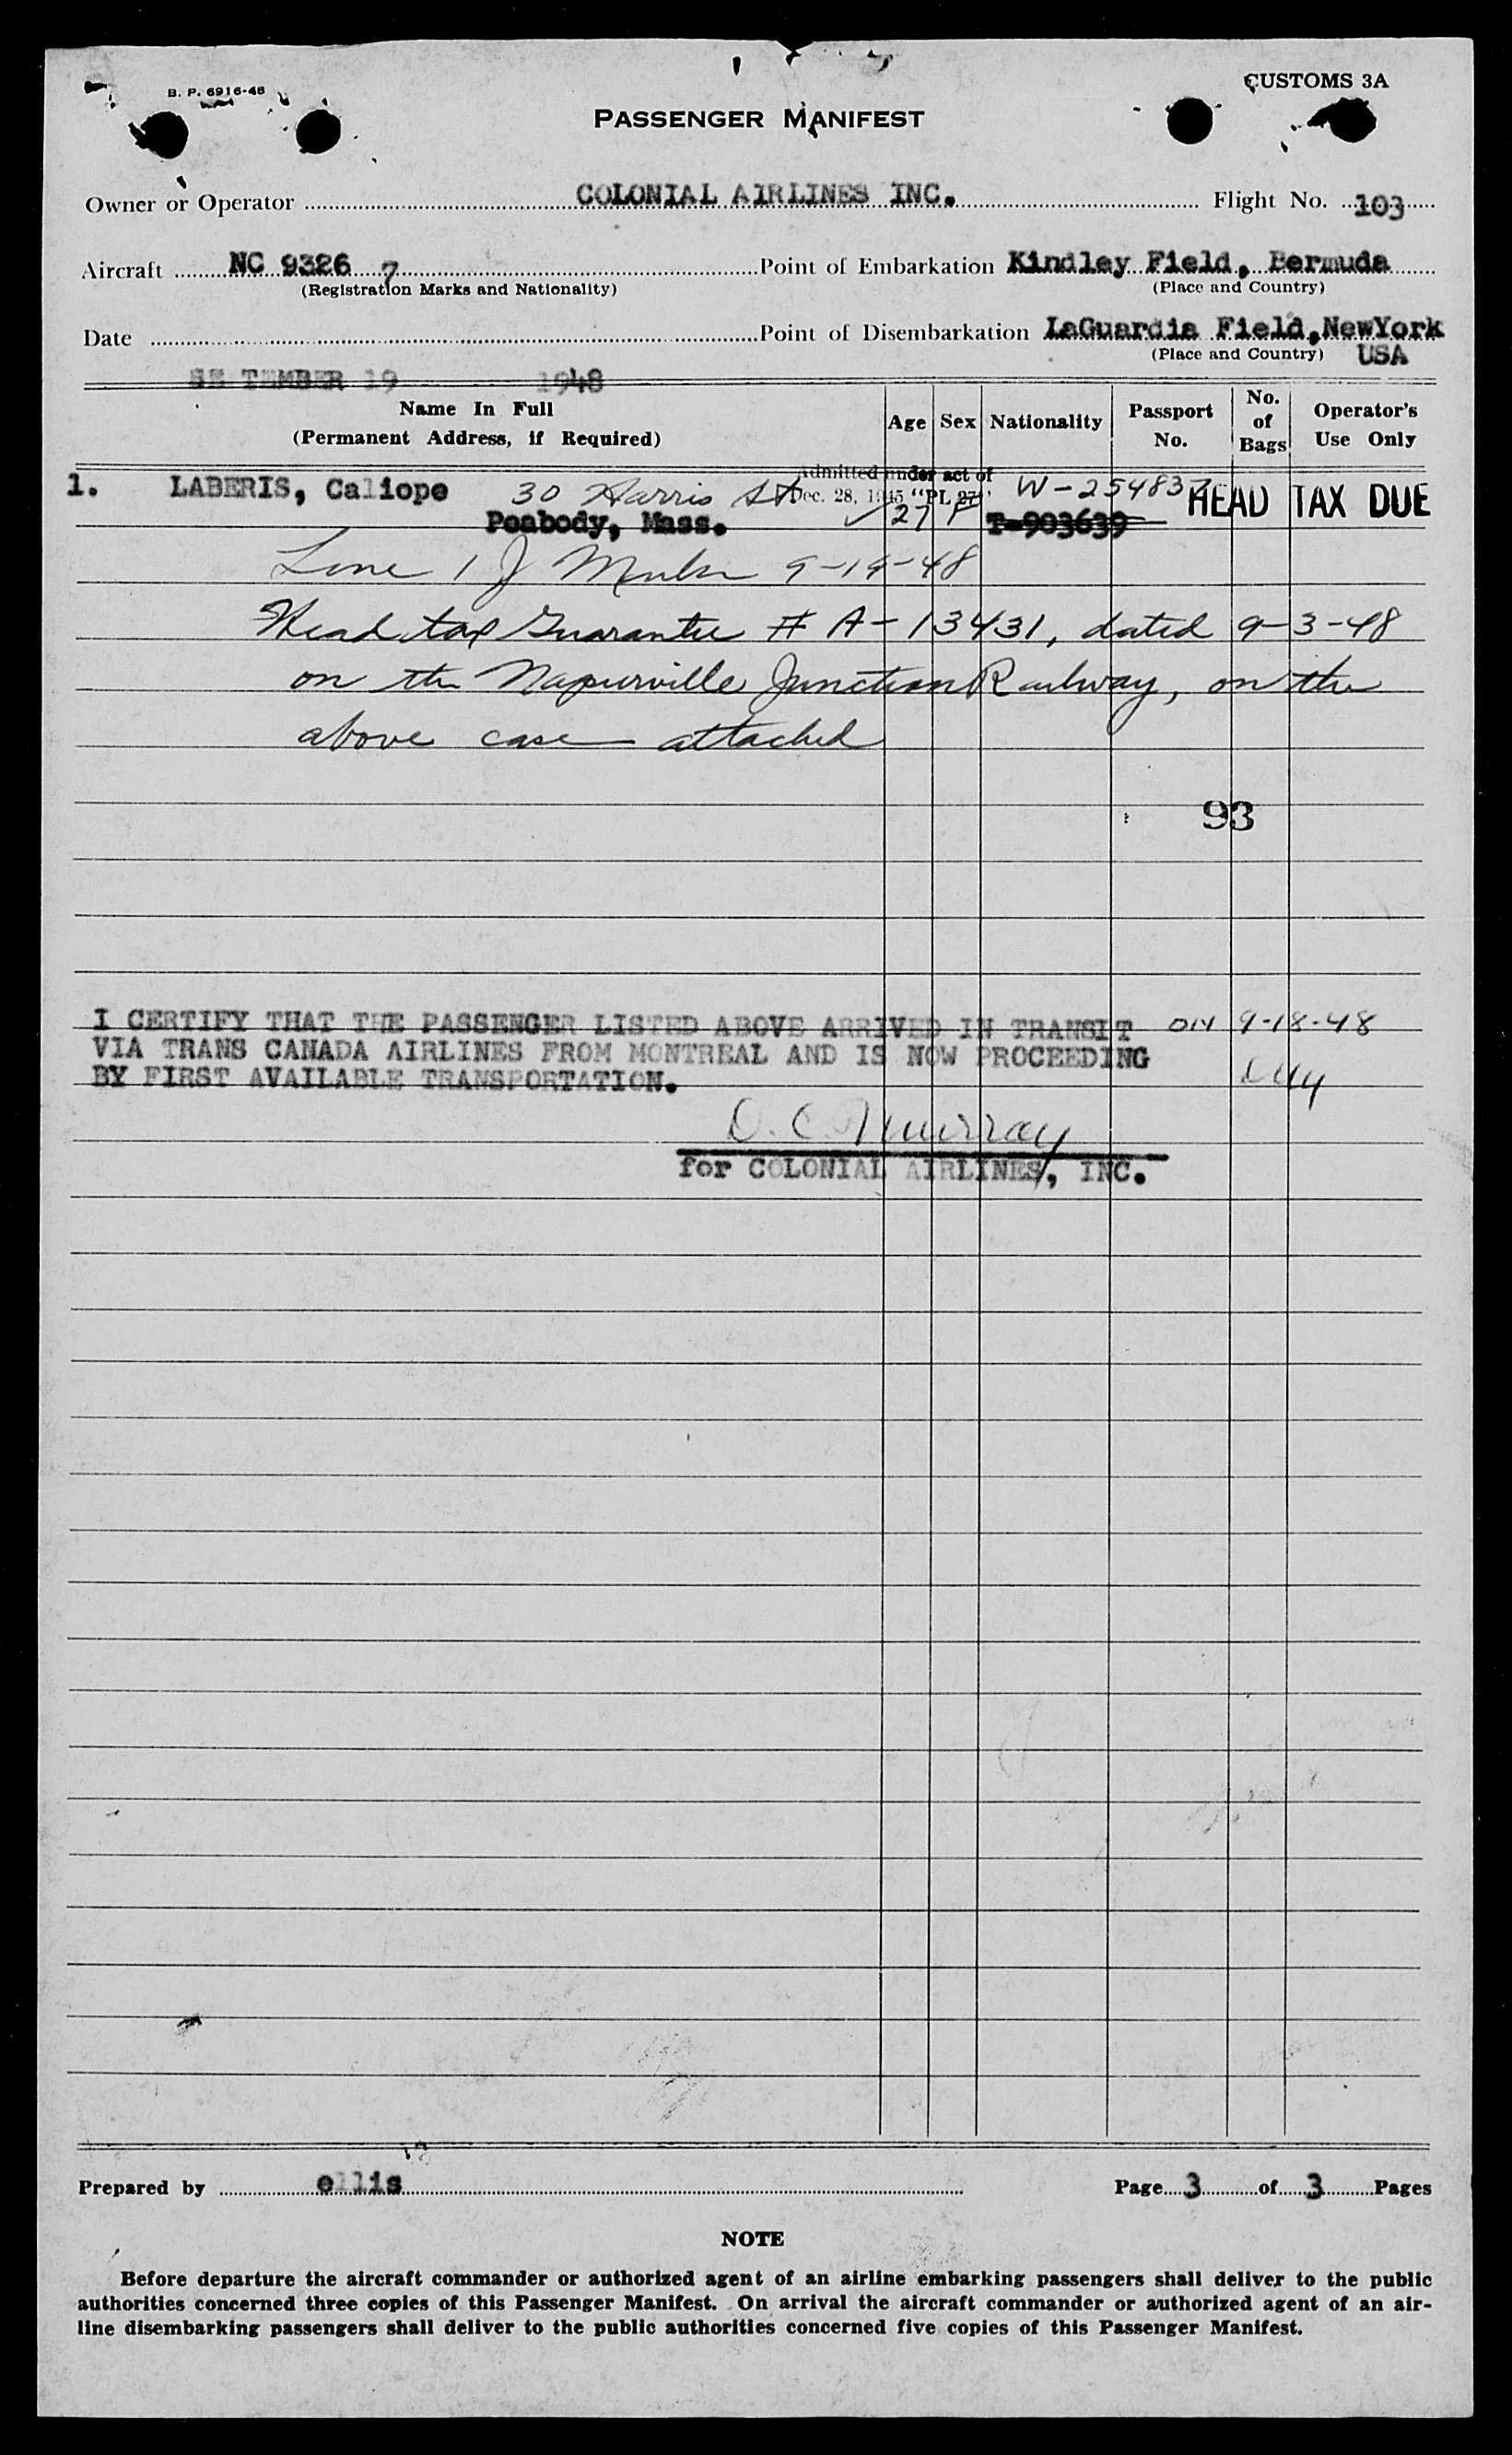 B. P. 6916-48
CUSTOMS 3A
PASSENGER MANIFEST
Owner or Operator COLONIAL AIRLINES INC. Flight No. 103
Aircraft NC 93267 Point of Embarkation Kindley Field, Bermuda
(Registration Marks and Nationality) (Place and Country)
Date Point of Disembarkation LaGuardia Field,NewYork
(Place and Country) USA
SE TEMBER 19 1948
Name In Full Age Sex Nationality Passport No. No. of Bags Operator's Use Only
(Permanent Address, if Required)
Admitted under act of
1. LABERIS, Caliope 30 Harris St Dec. 28, 1945 "PL 271" W-254837 HEAD TAX DUE
Peabody, Mass. 27 F T-903639
Line 1 J 9-19-48
Head tax Guarantee # A-13431, dated 9-3-48
on the Napierville Junction Railway, on the
above case attached
93
I CERTIFY THAT THE PASSENGER LISTED ABOVE ARRIVED IN TRANSIT ON 9-18-48
VIA TRANS CANADA AIRLINES FROM MONTREAL AND IS NOW PROCEEDING
BY FIRST AVAILABLE TRANSPORTATION.
D. C. Murray
for COLONIAL AIRLINES, INC.
Prepared by ellis Page 3 of 3 Pages
NOTE
Before departure the aircraft commander or authorized agent of an airline embarking passengers shall deliver to the public
authorities concerned three copies of this Passenger Manifest. On arrival the aircraft commander or authorized agent of an air-
line disembarking passengers shall deliver to the public authorities concerned five copies of this Passenger Manifest.